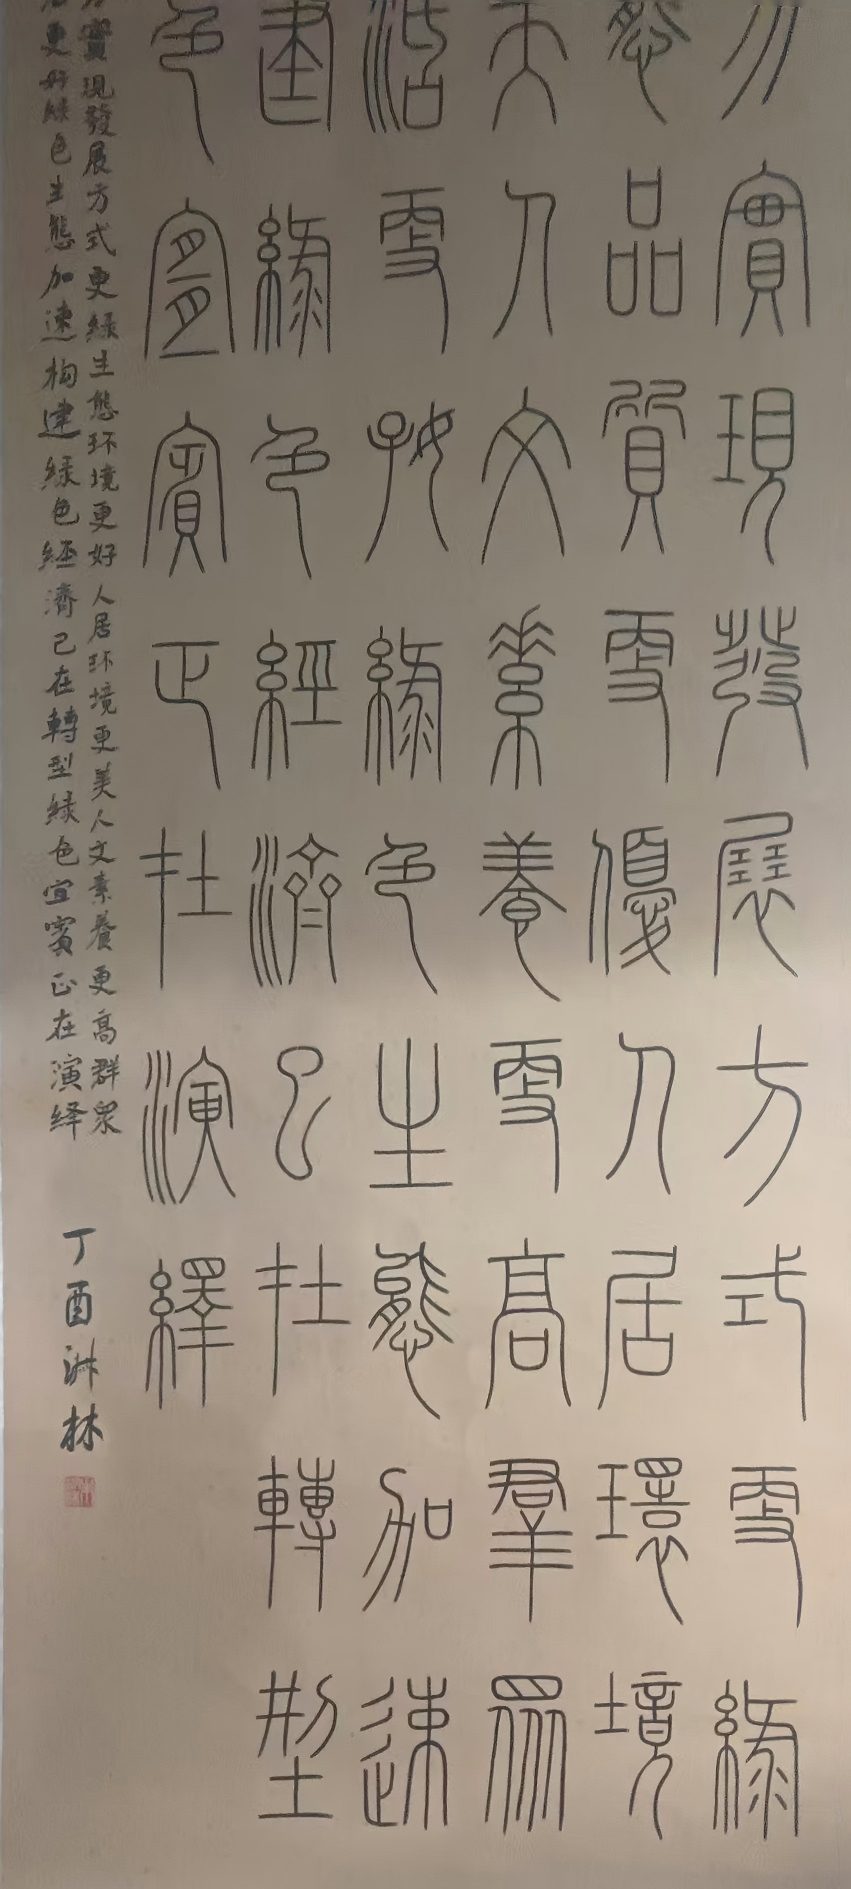 力實現發展方式更綠
態品質更優人居環境
美人文素養更高羣眾
活更好綠色生態加速
建綠色經濟已在轉型
色宜賓正在演繹
力實現發展方式更綠生態环境更好人居环境更美人文素養更高群眾
更好綠色生態加速构建綠色經濟已在轉型綠色宜賓正在演绎
丁酉 林